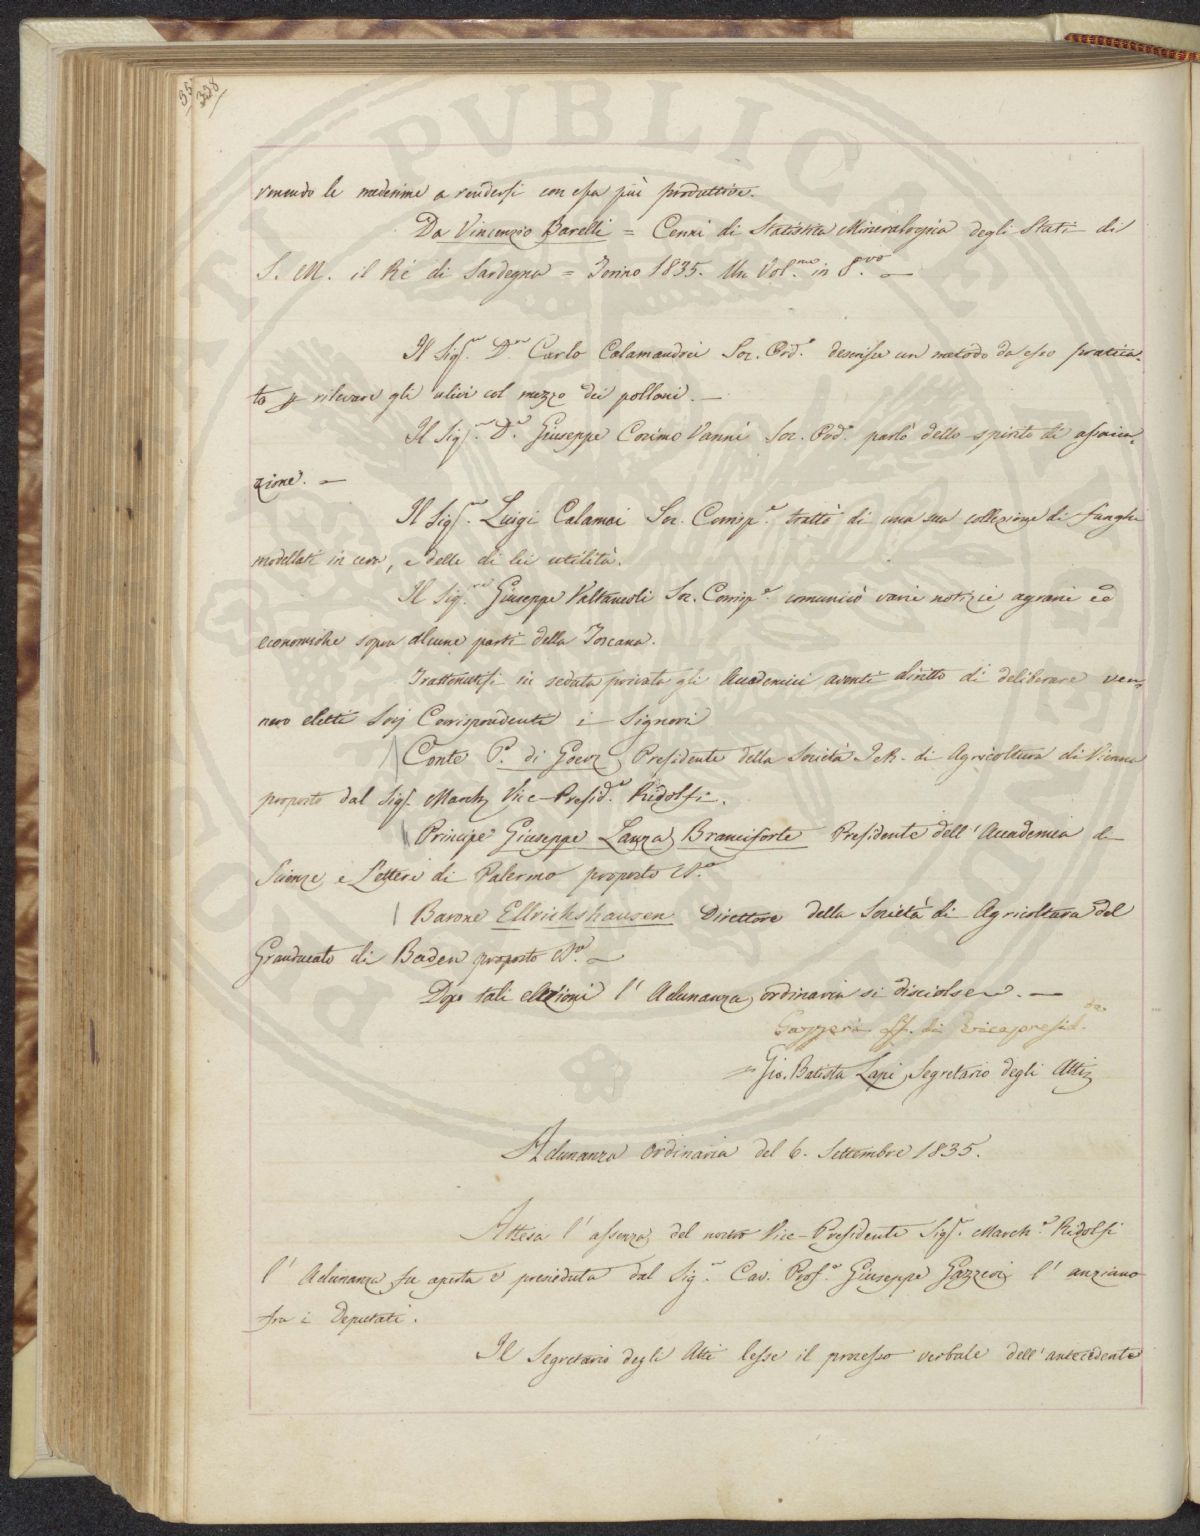 35
328
venendo le medesime a rendersi con essa più produttive.
Da Vincenzio Barelli = Cenni di Statistica Mineralogica degli Stati di
S. M. il Re di Sardegna = Torino 1835. Un Vol.me in 8.vo —
Il Sig.r D.r Carlo Calamandrei Soc. Ord.o descrisse un metodo da esso pratica-
to p rilevare gli ulivi col mezzo dei polloni. —
Il Sig.r D.r Giuseppe Cosimo Vanni Soc. Ord.o parlò dello spirito di associa-
zione. —
Il Sig.r Luigi Calamai Soc. Corrisp.e trattò di una sua collezione di funghi
modellati in cera, e della di lei utilità.
Il Sig.re Giuseppe Valtancoli Soc. Corrisp.e comunicò varie notizie agrarie ed
economiche sopra alcune parti della Toscana.
Trattenutisi in seduta privata gli Accademici aventi diritto di deliberare ven-
nero eletti Socj Corrispondenti i Signori
Conte P.o di Goez Presidente della Società I e R. di Agricoltura di Vienna
proposto dal Sig.r March Vice-Presid.e Ridolfi.
Principe Giuseppe Lanza Branciforte Presidente dell'Accademia di
Scienze e Lettere di Palermo proposto
Barone Ellrichshausen Direttore della Società di Agricoltura del
Granducato di Baden proposto
Dopo tali elezioni l'Adunanza ordinaria si disciolse. —
Gazzeri ff. di Vicepresid.
Gio. Batista Lapi Segretario degli Atti
Adunanza ordinaria del 6. Settembre 1835.
Attesa l'assenza del nostro Vice-Presidente Sig.r March.e Ridolfi
l'Adunanza fu aperta e presieduta dal Sig.r Cav. Prof.e Giuseppe Gazzeri l'anziano
fra i Deputati.
Il Segretario degli Atti lesse il processo verbale dell'antecedente